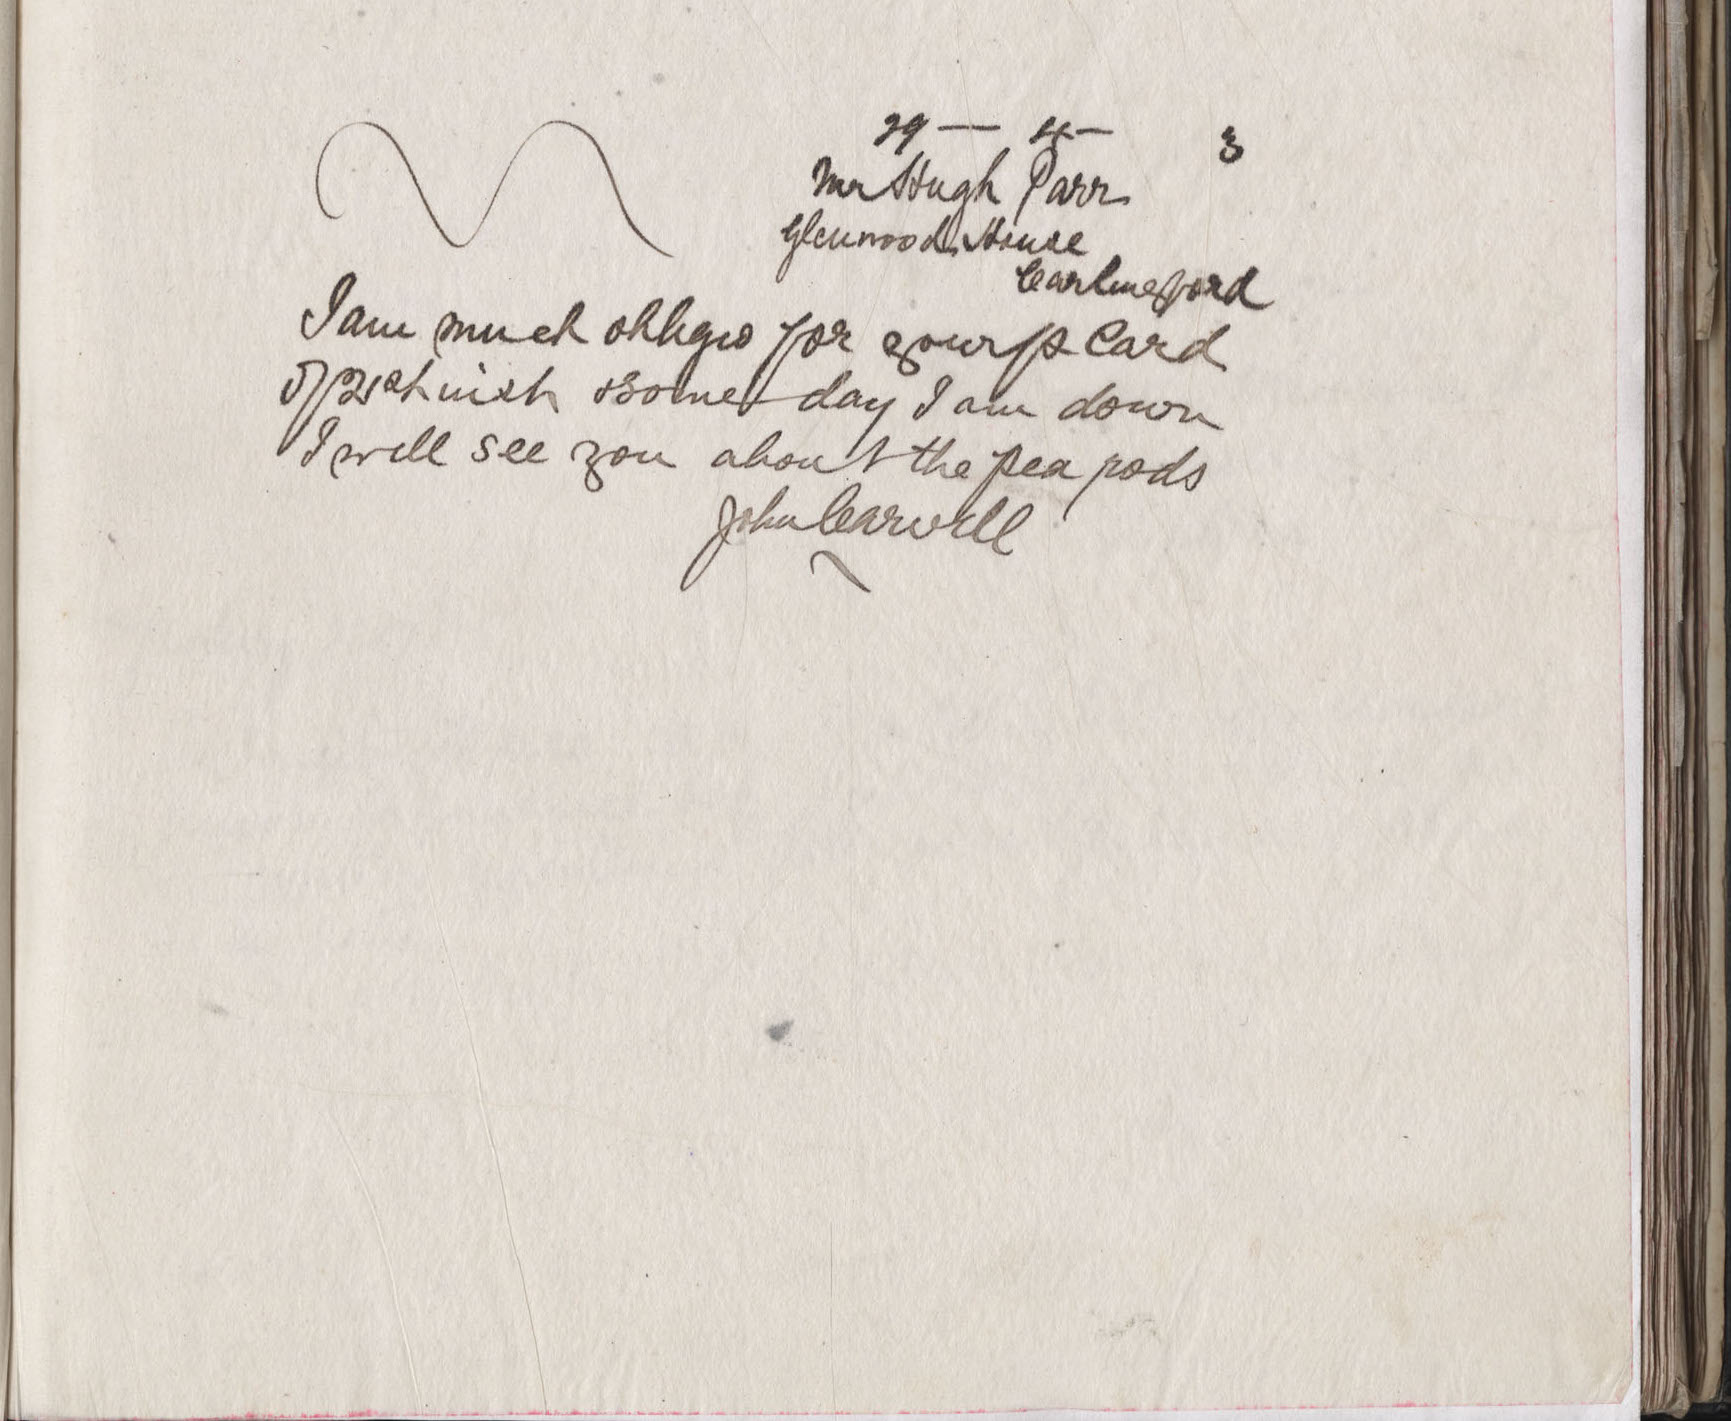 29 — 4 — 3
Mr Hugh Parr
Glenwood House
Carlingford
I am much obliged for your p Card
of 21st inst & some day I am down
I will see you about the pea rods
John Carvill